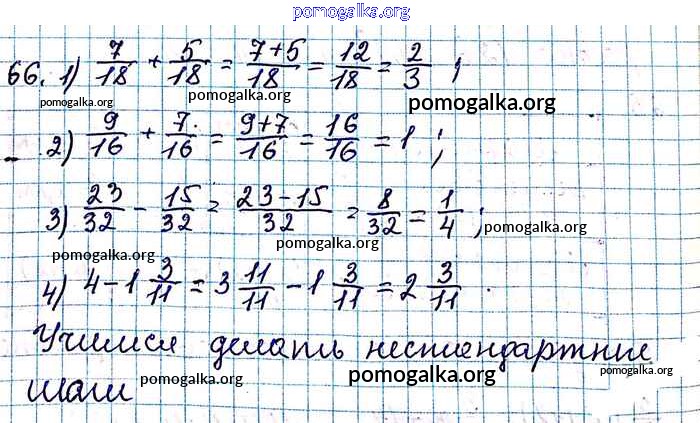 pomogalka.org
66. 1) 7/18 + 5/18 = 7+5/18 = 12/18 = 2/3 ;
pomogalka.org pomogalka.org pomogalka.org
2) 9/16 + 7/16 = 9+7/16 = 16/16 = 1 ;
3) 23/32 - 15/32 = 23-15/32 = 8/32 = 1/4 ;
pomogalka.org pomogalka.org pomogalka.org
4) 4 - 1 3/11 = 3 11/11 - 1 3/11 = 2 3/11 .
Учимся делать нестандартные
шаги
pomogalka.org pomogalka.org pomogalka.org